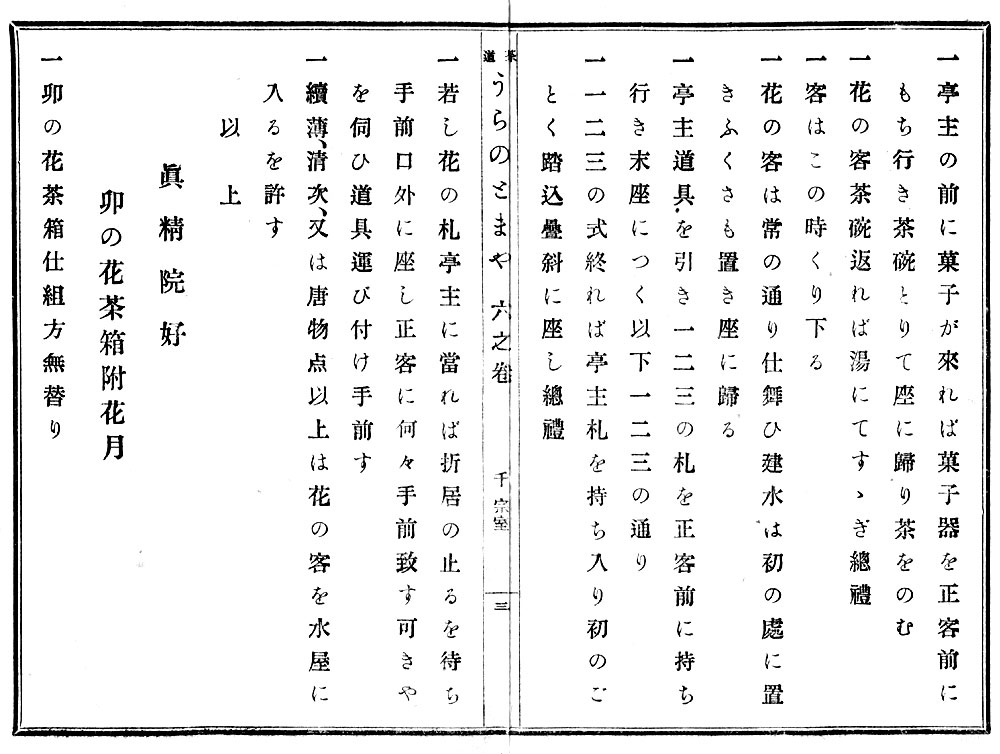 一亭主の前に菓子が來れば菓子器を正客前に
もち行き茶碗とりて座に歸り茶をのむ
一花の客茶碗返れば湯にてすゝぎ總禮
一客はこの時くり下る
一花の客は常の通り仕舞ひ建水は初の處に置
きふくさも置き座に歸る
一亭主道具を引き一二三の札を正客前に持ち
行き末座につく以下一二三の通り
一一二三の式終れば亭主札を持ち入り初のご
とく踏込疊斜に座し總禮
茶道 うらのとまや 六之卷 千宗室 三
一若し花の札亭主に當れば折居の止るを待ち
手前口外に座し正客に何々手前致す可きや
を伺ひ道具運び付け手前す
一續薄、淸次、又は唐物点以上は花の客を水屋に
入るを許す
以上
眞精院好
卯の花茶箱附花月
一卯の花茶箱仕組方無替り